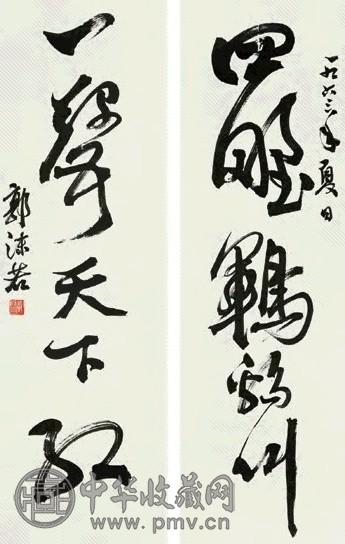 一九六三年夏日
四野鶤鷄叫
一聲天下红
郭沫若
中华收藏网
www.pmv.cn